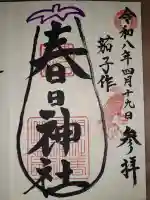 令和八年四月十九日
参拝
茄子作
春日神社